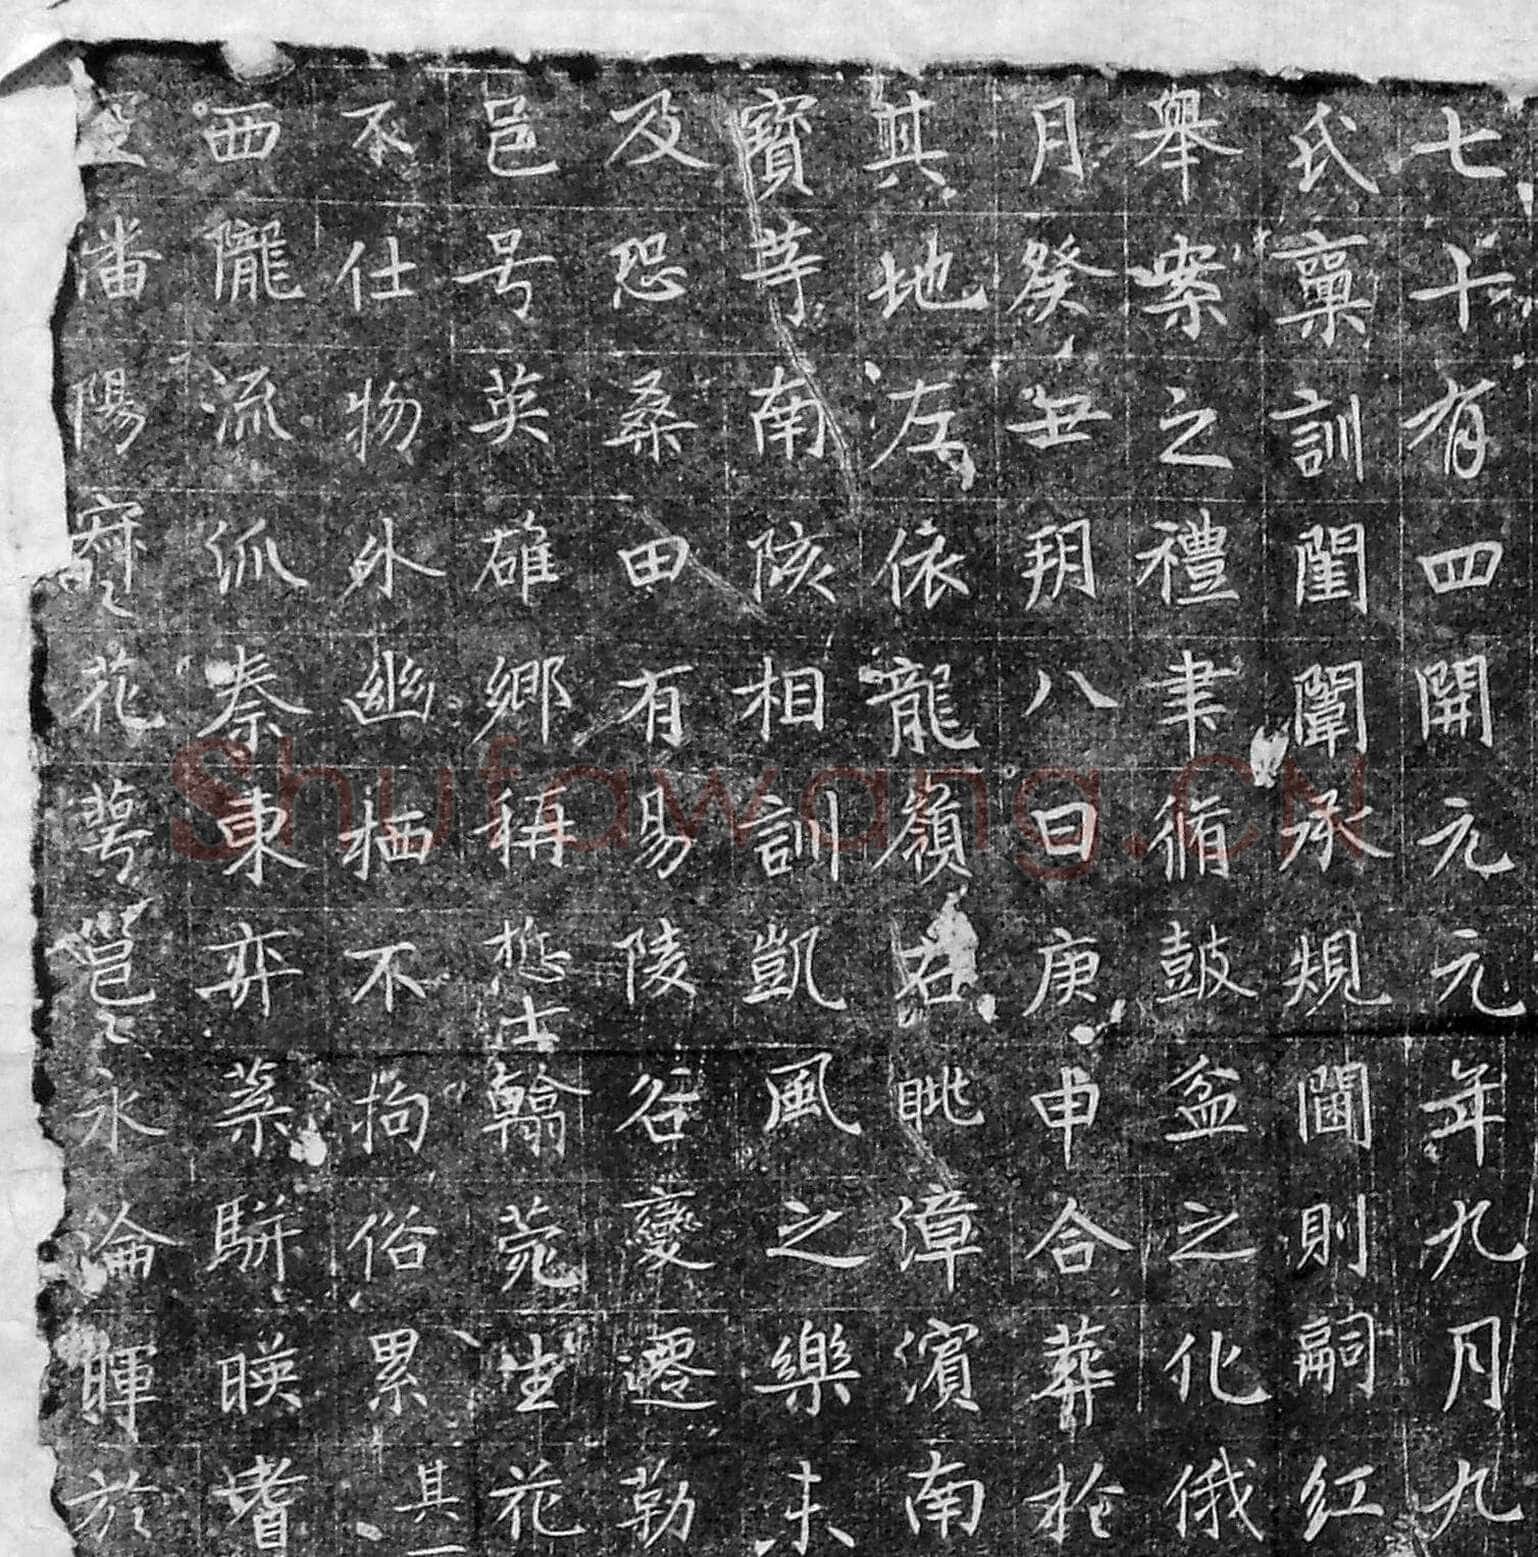 七十有四開元元年九月九
氏稟訓閨闈承規閫則嗣紅
舉案之禮聿脩鼓盆之化俄
月癸丑朔八日庚申合葬於
其地左依龍嶺右眺漳濱南
寶等南陔相訓凱風之樂未
及恐桑田有易陵谷變遷勒
邑号英雄鄉稱哲士翰菀生花
不仕物外幽栖不拘俗累其一
西隴流派秦東弈葉駢暎耆
潘陽寂〻花萼邕〻永淪暉於
Shufawang.CN